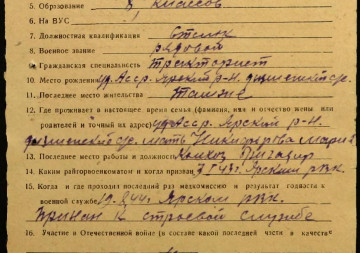 5. Образование 8 классов
6. На ВУС
7. Должностная квалификация Стрелк
8. Военное звание рядовой
9. Гражданская специальность тракторист
10. Место рождения уд. Асср. Ярский р-н.
11. Последнее место жительства Там же
12. Где проживает в настоящее время семья (фамилия, имя и отчество жены или
родителей и точный их адрес) уд. Асср. Ярский р-н.
мать Никифорова Мария
13. Последнее место работы и должность Колхоз
14. Каким райгорвоенкоматом и когда призван Ярским рвк.
15. Когда и где проходил последний раз медкомиссию и результат годности к
военной службе 19.2.44г. Ярском рвк.
признан к строевой службе
16. Участие в Отечественной войне (в составе какой последней части в качестве